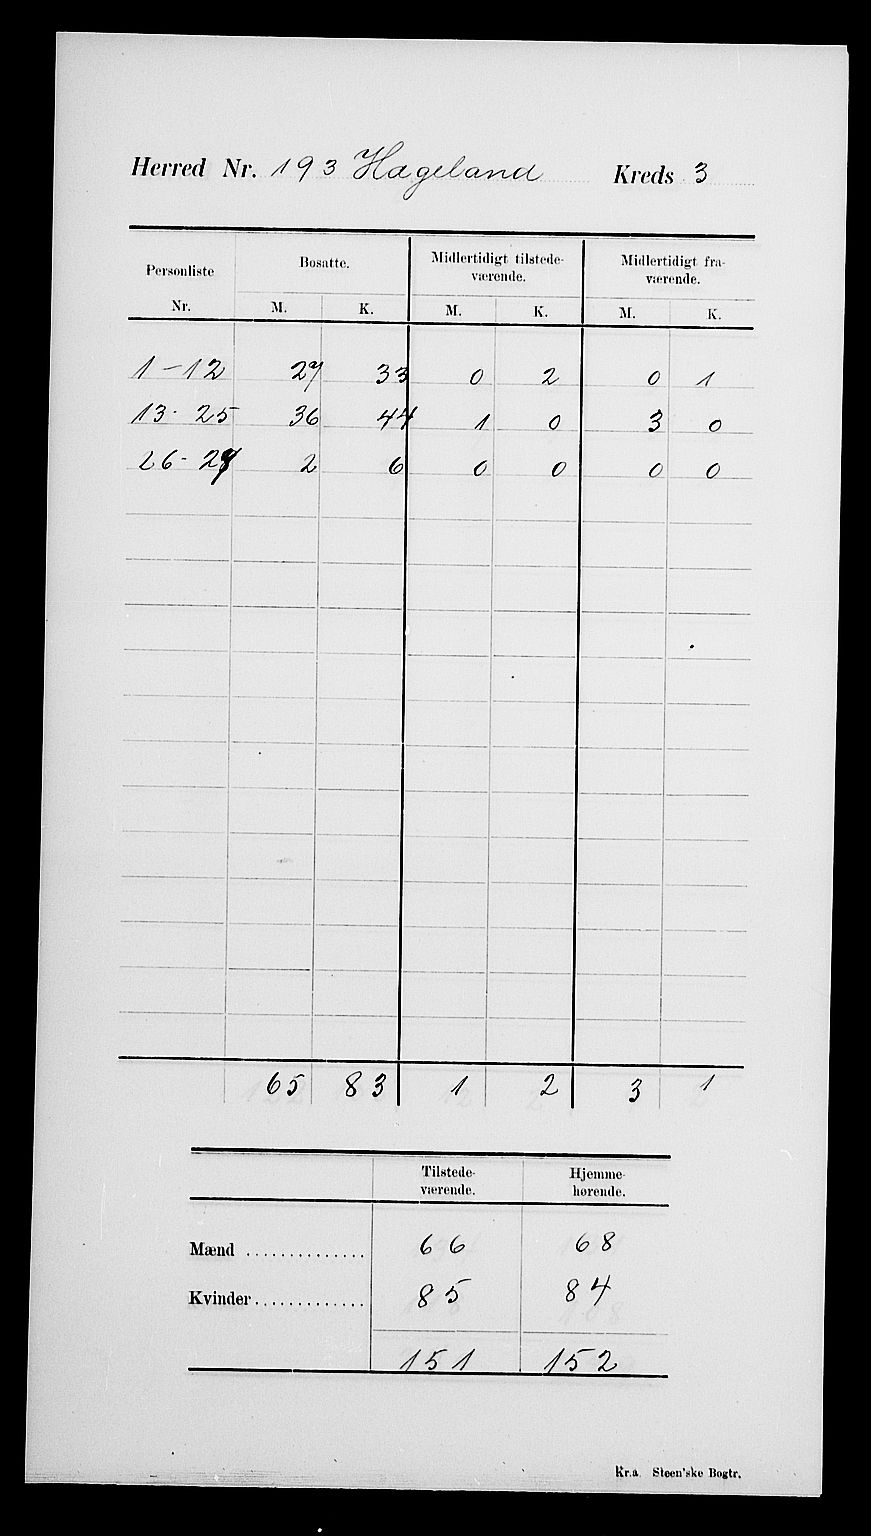 Herred Nr. 193 Hægeland Kreds 3
Personliste Nr. Bosatte. Midlertidigt tilstede-værende. Midlertidigt fra-værende.
M. K. M. K. M. K.
1-12 27 33 0 2 0 1
13-25 36 44 1 0 3 0
26- 2 6 0 0 0 0
65 83 1 2 3 1
Tilstede-værende. Hjemme-hørende.
Mænd .............. 66 68
Kvinder............. 85 84
151 152
Kr.a. Steen'ske Bogtr.